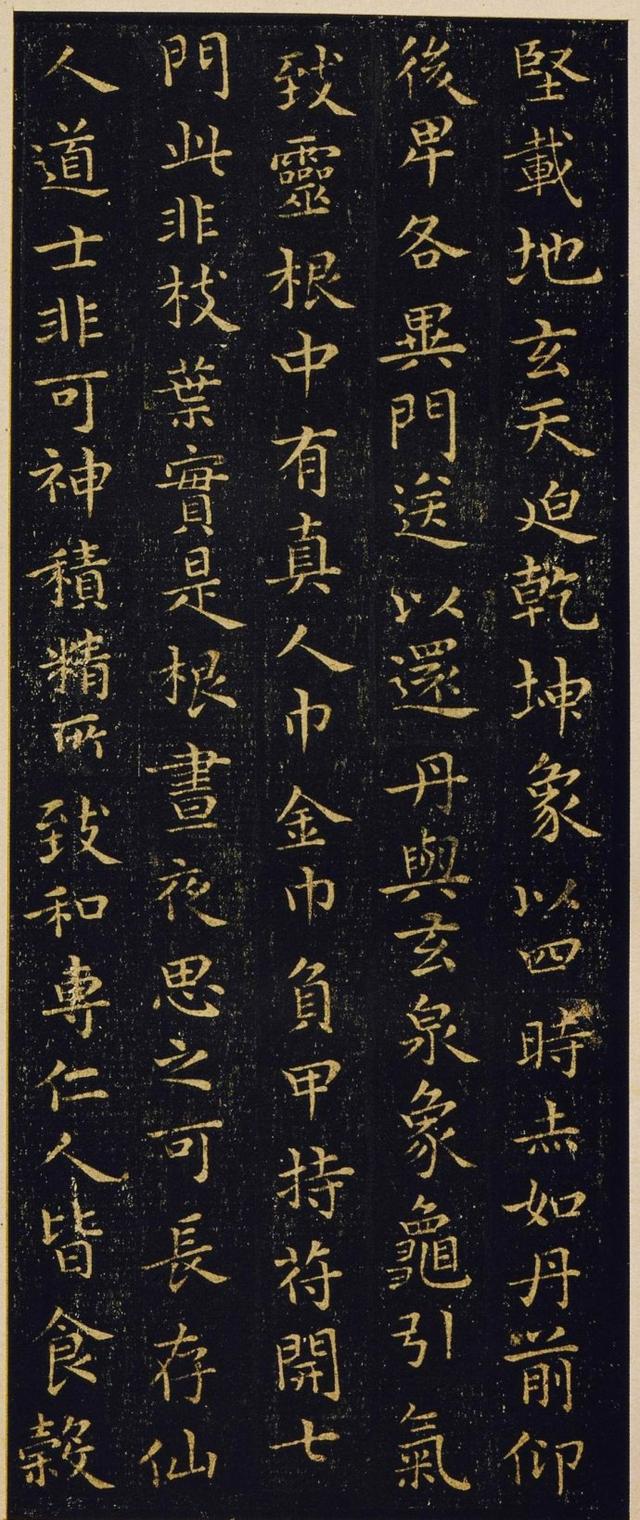 堅載地玄天迫乾坤象以四時赤如丹前仰
後卑各異門送以還丹與玄泉象龜引氣
致靈根中有真人巾金巾負甲持苻開七
門此非枝葉實是根晝夜思之可長存仙
人道士非可神積精所致和專仁人皆食穀